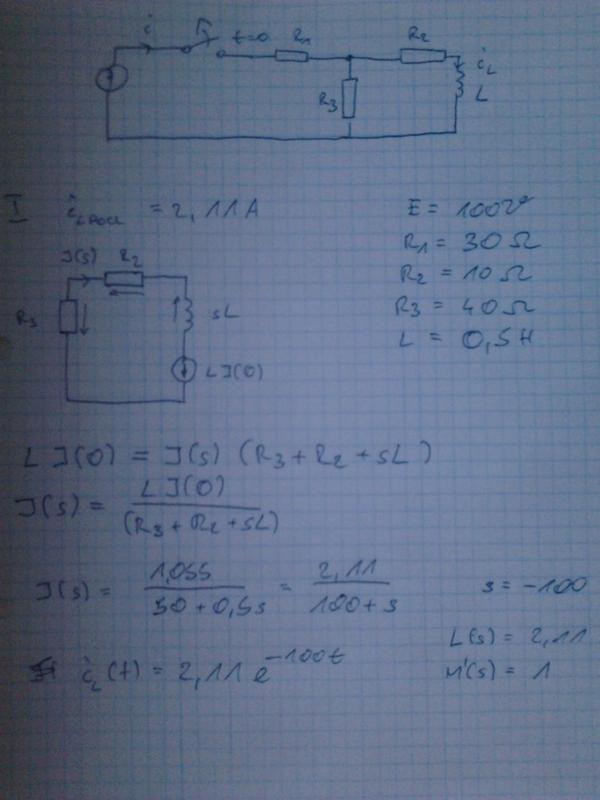 i t=0 R1 R2
R3 iL L
I iL = 2,11A
E = 100V
R1 = 30 Ω
R2 = 10 Ω
R3 = 40 Ω
L = 0,5H
I(s) R2
R3 sL
L I(0)
L I(0) = I(s) (R3 + R2 + sL)
I(s) = L I(0) / (R3 + R2 + sL)
I(s) = 1,055 / 50 + 0,5s = 2,11 / 100 + s s = -100
L(s) = 2,11
M'(s) = 1
iL(t) = 2,11 e^-100t